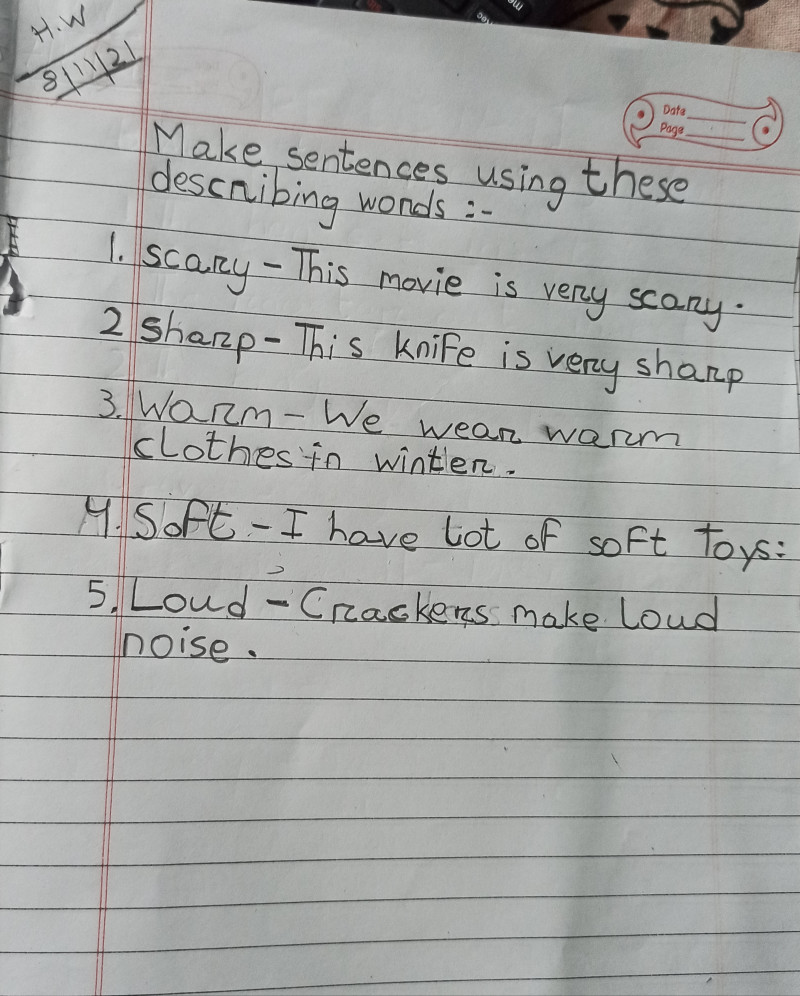 H.W
8/11/21
Date
Page
Make sentences using these
describing words :-
1. scary - This movie is very scary.
2 sharp - This knife is very sharp
3. Warm - We wear warm
clothes in winter.
4. Soft - I have lot of soft Toys:
5. Loud - Crackers make loud
noise.